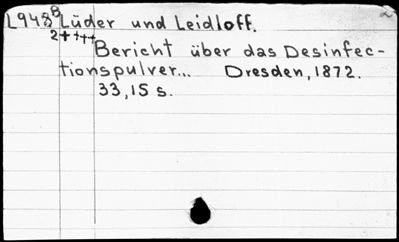 L9488 Lüder und Leidloff.
2++++
Bericht über das Desinfec-
tionspulver... Dresden, 1872.
33, 15 s.